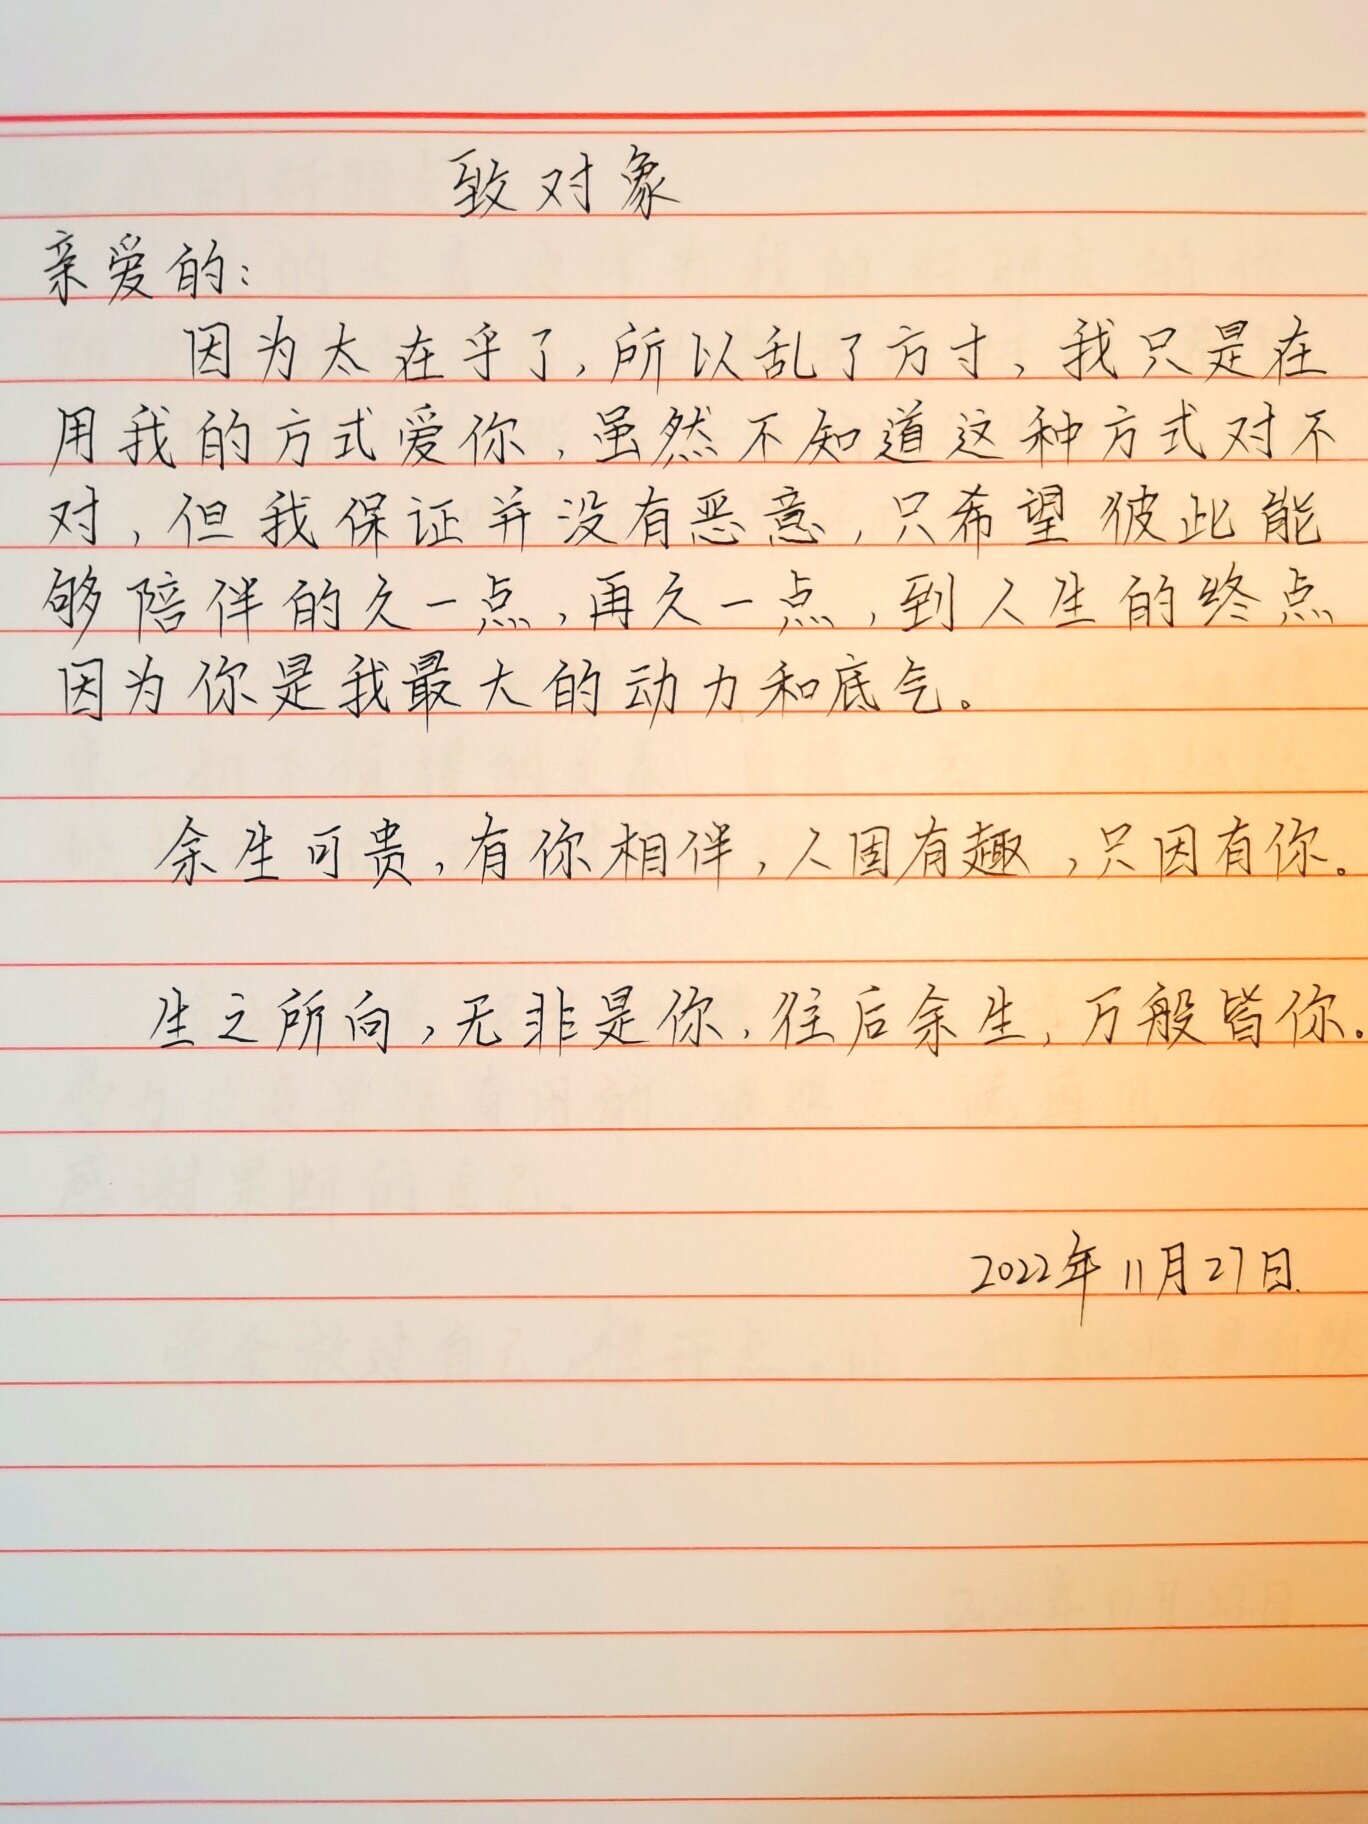 致对象
亲爱的：
因为太在乎了，所以乱了方寸、我只是在
用我的方式爱你，虽然不知道这种方式对不
对，但我保证并没有恶意，只希望彼此能
够陪伴的久一点，再久一点，到人生的终点
因为你是我最大的动力和底气。
余生可贵，有你相伴，人固有趣，只因有你。
生之所向，无非是你，往后余生，万般皆你。
2022年11月27日